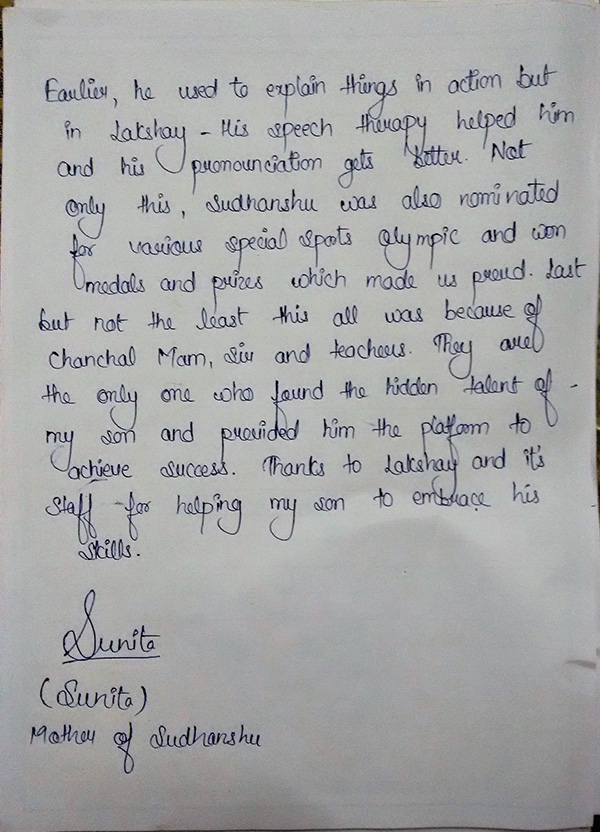 Earlier, he used to explain things in action but
in Lakshay - His speech therapy helped him
and his pronounciation gets better. Not
only this, Sudhanshu was also nominated
for various special sports Olympic and won
medals and prizes which made us proud. Last
but not the least this all was because of
Chanchal Mam, Sir and teachers. They are
the only one who found the hidden talent of -
my son and provided him the platform to
achieve success. Thanks to Lakshay and it's
staff for helping my son to embrace his
skills.
Sunita
(Sunita)
Mother of Sudhanshu